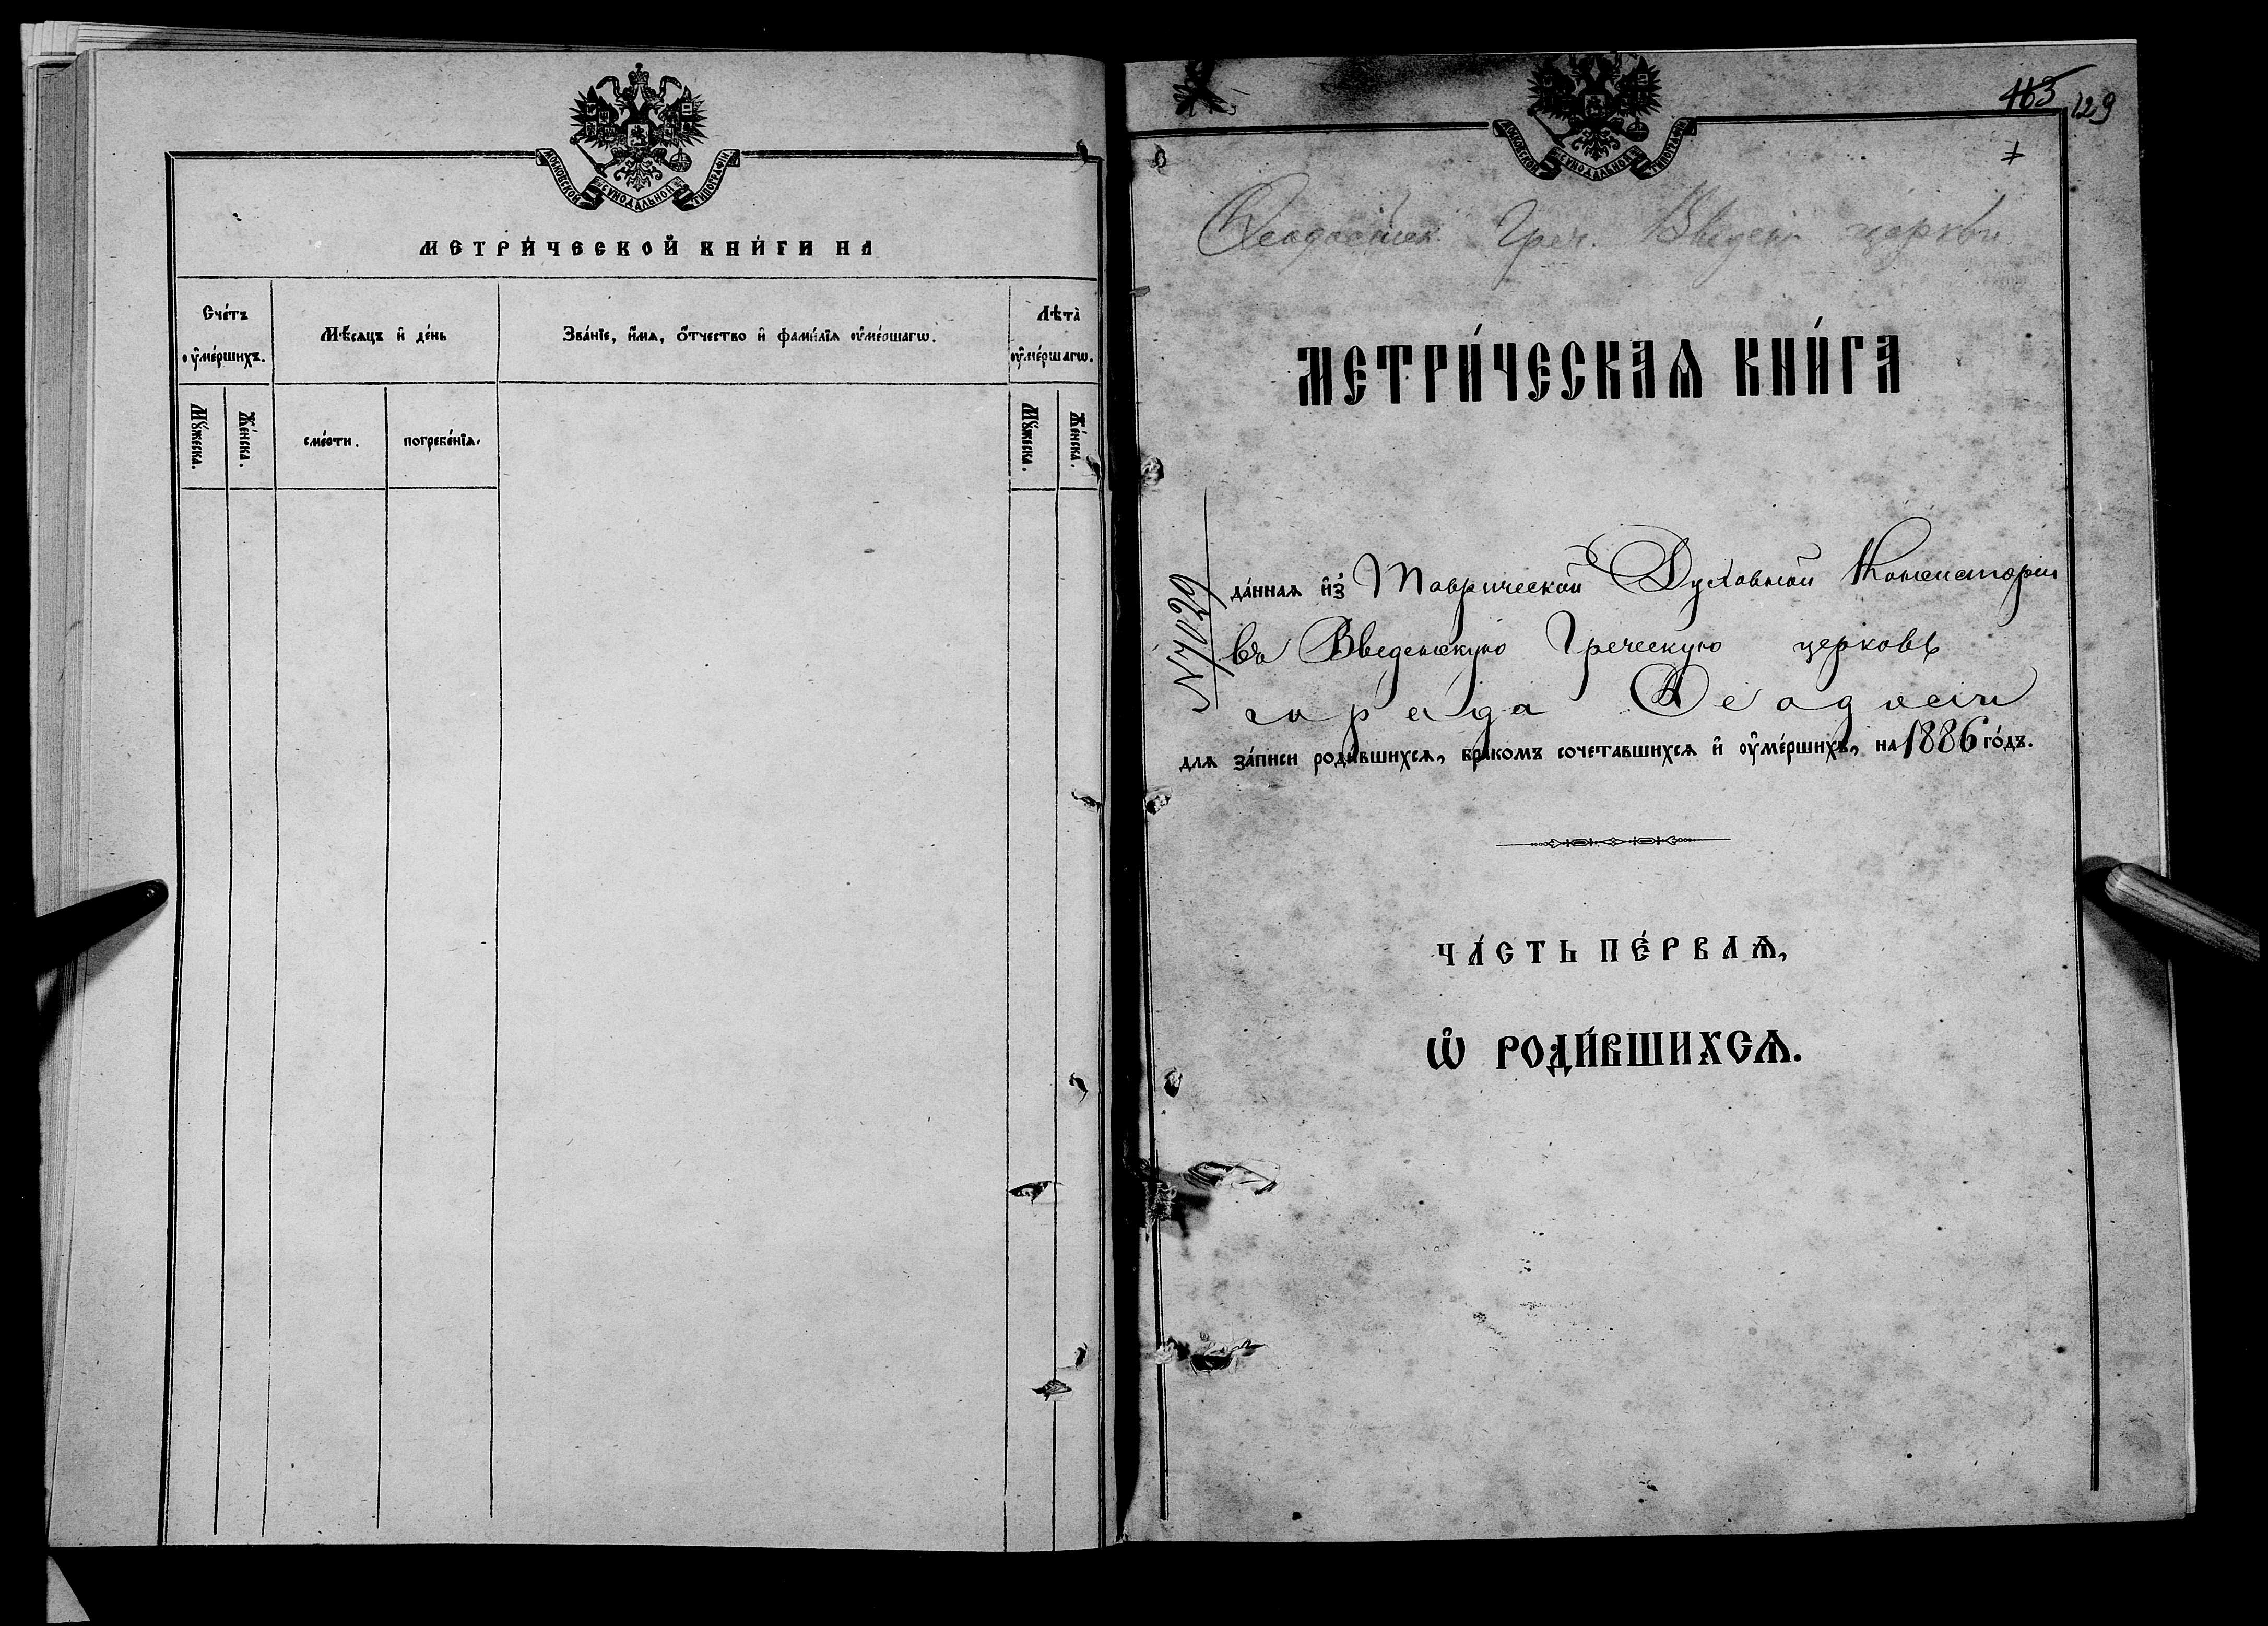 МОСКОВСКОЙ СѴНОДАЛЬНОЙ ТИПОГРАФІИ
МЕТРИ́ЧЕСКОЙ КНИ́ГИ НА
Сче́тъ оу҆ме́ршихъ.
Мѣ́сяцъ и҆ де́нь
Зва́нїе, и҆́мѧ, о҆́тчество и҆ фами́лїѧ оу҆ме́ршагѡ.
Лѣта̀ оу҆ме́ршагѡ.
Мꙋ́жеска.
Же́нска.
сме́рти.
погребе́нїѧ.
Мꙋ́жеска.
Же́нска.
463 129
МОСКОВСКОЙ СѴНОДАЛЬНОЙ ТИПОГРАФІИ
Ѳеодосійск. Греч. Введен. церкви
МЕТРИ́ЧЕСКАѦ КНИ́ГА
№ 7029
да́ннаѧ и҆з̾ Таврической Духовной Консисторіи
въ Введенскую Греческую церковь
города Ѳеодосіи
для за́писи роди́вшихсѧ, бра́комъ сочета́вшихсѧ и҆ оу҆ме́ршихъ, на 1886 го́дъ.
ЧА́СТЬ ПЕ́РВАѦ,
Ѽ РОДИ́ВШИХСѦ.